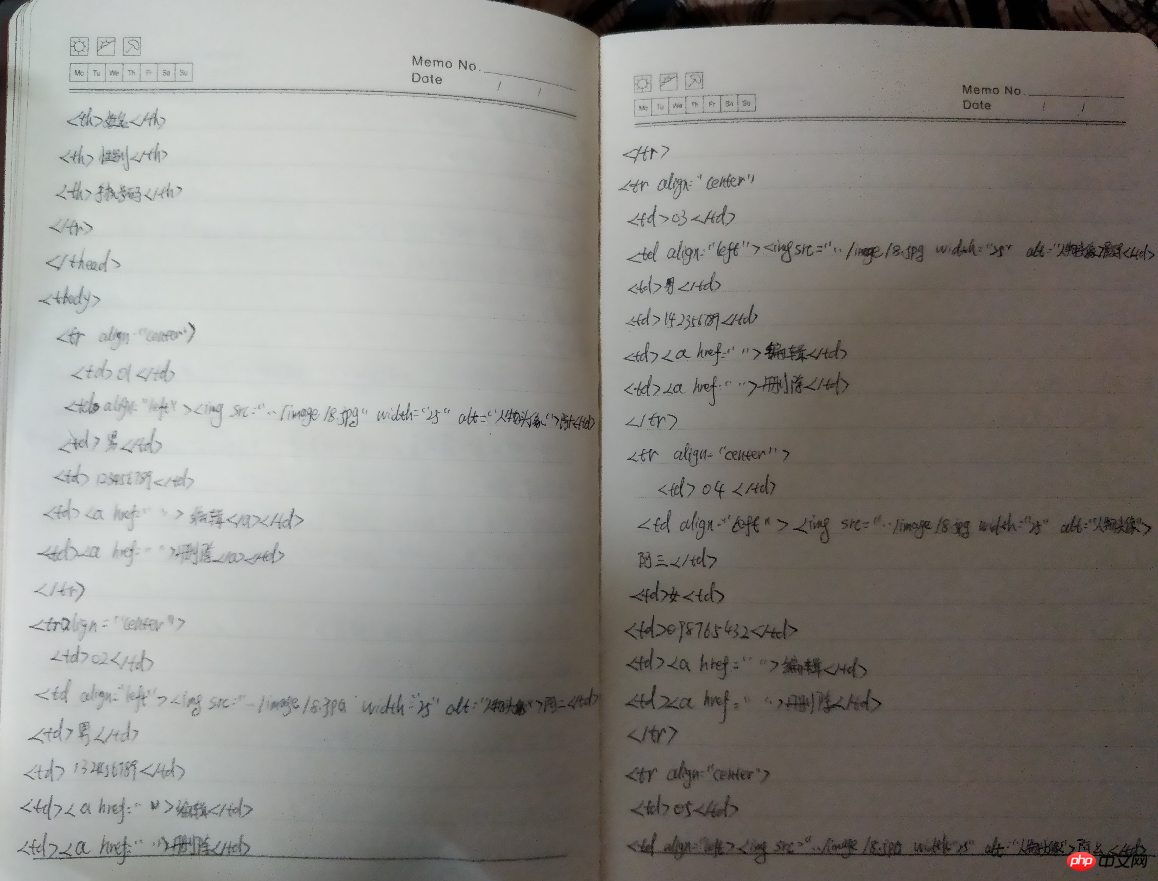 Mo Tu We Th Fr Sa Su
Memo No.
Date / /
<th>姓名</th>
<th>性别</th>
<th>手机号码</th>
</tr>
</thead>
<tbody>
<tr align="center")
<td>01</td>
<td align="left"><img src="../image/8.jpg" width="25" alt="人物头像">阿</td>
<td>男</td>
<td>123456789</td>
<td><a href=" ">编辑</a></td>
<td><a href=" ">删除</a></td>
</tr)
<tr align="center">
<td>02</td>
<td align="left"><img src="../image/8.jpg width="25" alt="人物头像>阿二</td>
<td>男</td>
<td>132456789</td>
<td><a href=" ">编辑</td>
<td><a href=" ">删除</td>
Mo Tu We Th Fr Sa Su
Memo No.
Date / /
</tr>
<tr align="center")
<td>03</td>
<td align="left"><img src="../image/8.jpg width="25" alt="人物头像</td>
<td>男</td>
<td>142356789</td>
<td><a href=" ">编辑</td>
<td><a href=" ">删除</td>
</tr>
<tr align="center">
<td>04</td>
<td align="left"><img src="../image/8.jpg width="25" alt="人物头像">
阿三</td>
<td>女<td>
<td>098765432</td>
<td><a href=" ">编辑</td>
<td><a href=" ">删除</td>
</tr>
<tr align="center">
<td>05</td>
<td align="left><img src="../image/8.jpg width="25" alt="人物头像>阿</td>
php 中文网